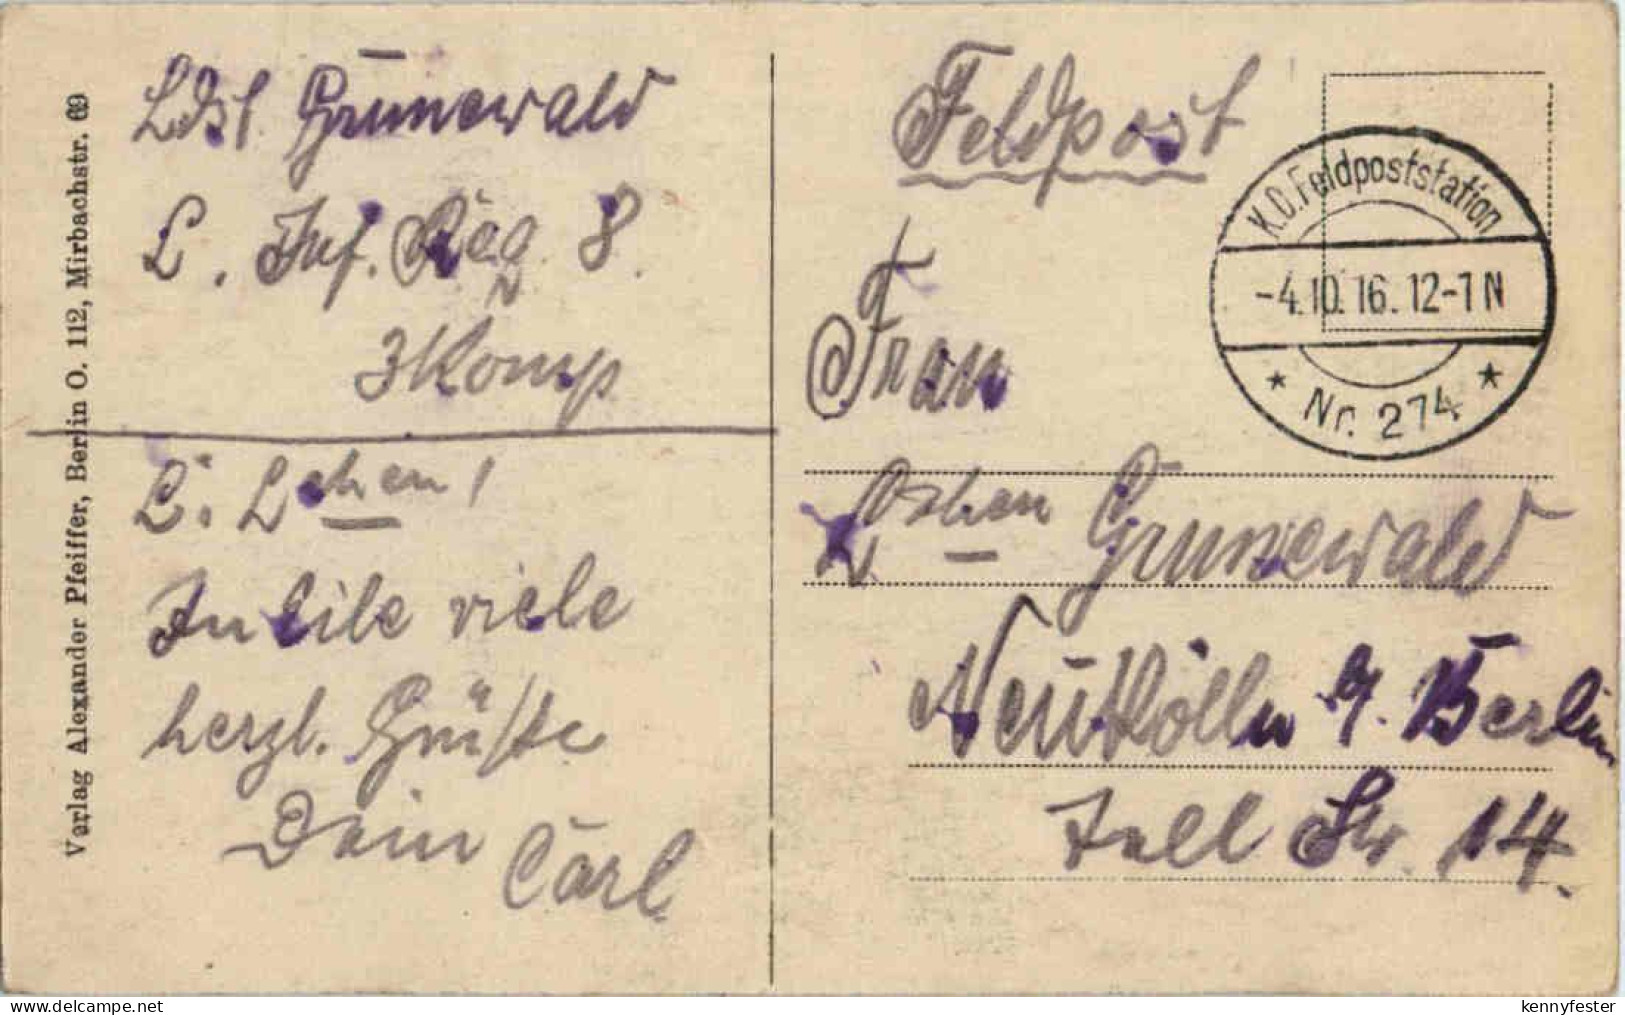 Verlag Alexander Pfeiffer, Berlin O. 112, Mirbachstr. 69
Ldst Grunewald
L. Inf. Reg. 8.
3 Komp
L. Lchen!
In Eile viele
herzl. Grüße
Dein Carl
Feldpost
K.D. Feldpoststation
-4.10.16. 12-1 N
* Nr. 274 *
Frau
Grunewald
Neukölln b. Berlin
Tell Str. 14.
kennyfester